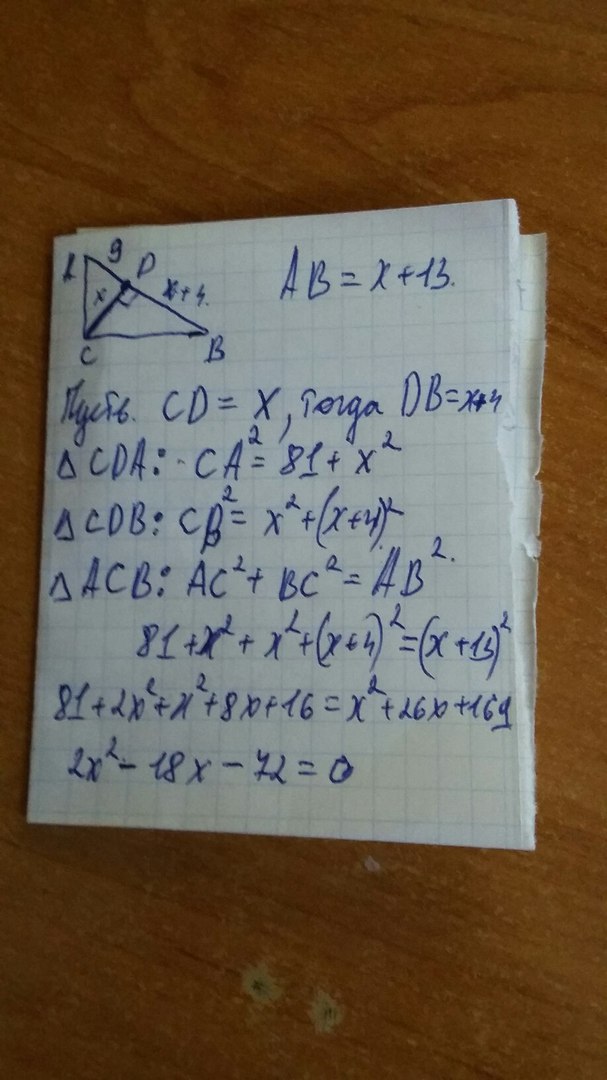 A 9 D
x x+4.
C B
AB = x+13.
Пусть. CD = x, тогда DB=x+4
Δ CDA: CA² = 81 + x²
Δ CDB: CB² = x²+(x+4)²
Δ ACB: AC² + BC² = AB².
81+x² + x²+(x+4)² = (x+13)²
81+2x²+x²+8x+16 = x²+26x+169
2x² - 18x - 72 = 0